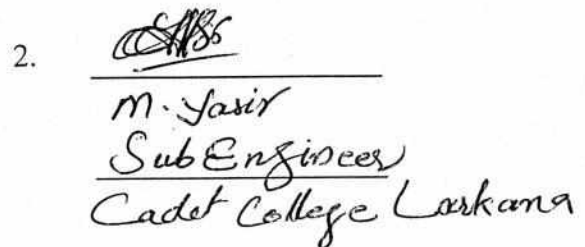 2.
M. Yasir
Sub Engineer
Cadet College Larkana